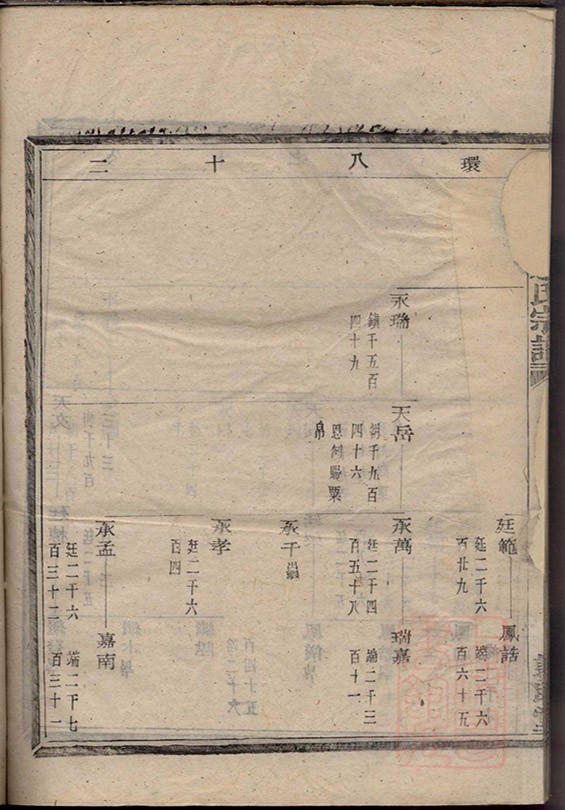 環八十二
氏宗譜
廷範
廷二千六
百廿九
鳳誥
端二千六
百六十五
永瑞
鎮千五百
四十九
天岳
朝千九百
四十六
恩例賜粟
帛
承萬
廷二千四
百五十八
瑞嘉
端二千三
百十一
承千
承孝
廷二千六
百四
承孟
廷二千六
百三十二
嘉南
端二千七
百三十二